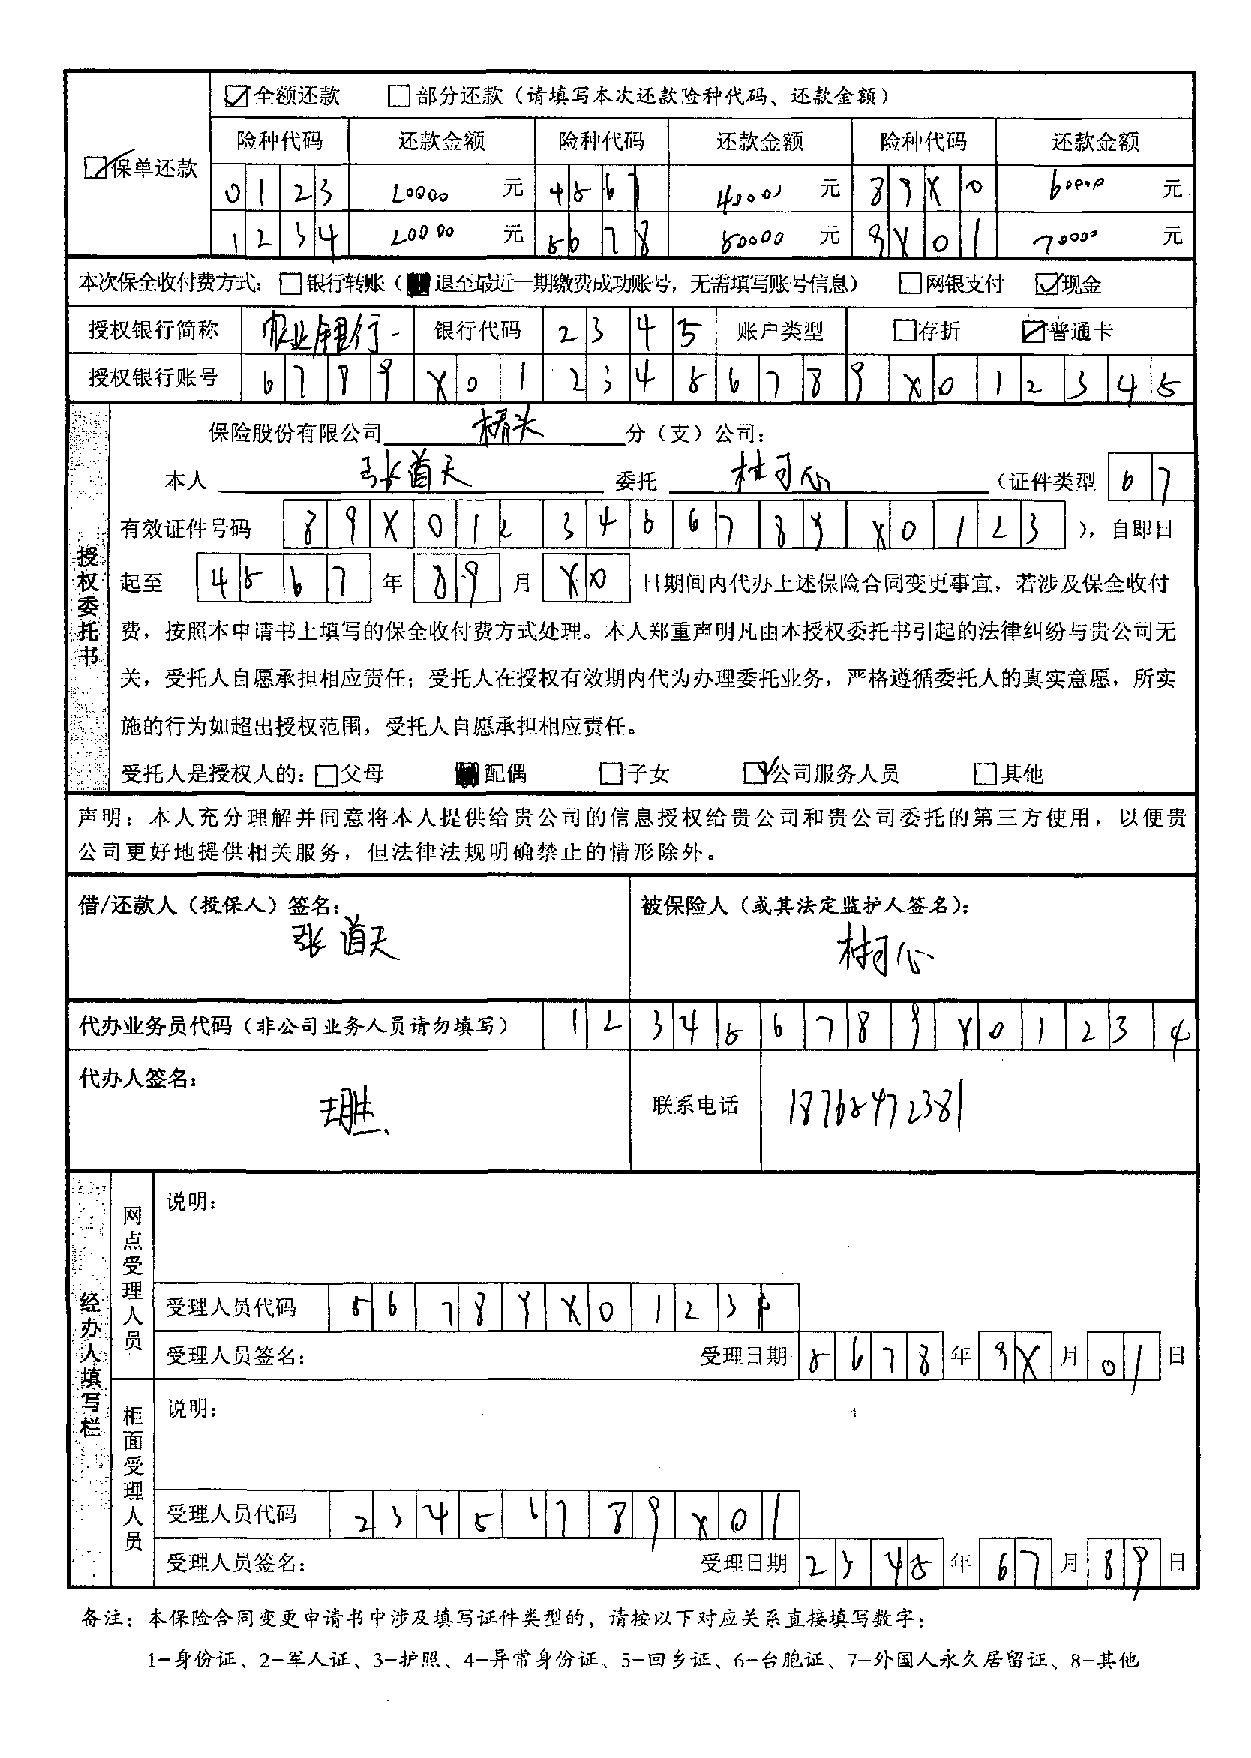 ☑全额还款 □部分还款（请填写本次还款险种代码、还款金额）
险种代码 还款金额 险种代码 还款金额 险种代码 还款金额
☑保单还款
0123 20000 元 4567 40000 元 89X0 60000 元
1234 20000 元 5678 50000 元 9X01 70000 元
本次保全收付费方式：□银行转账（ 退至最近一期缴费成功账号，无需填写账号信息） □网银支付 ☑现金
授权银行简称 农业银行 银行代码 2345 账户类型 □存折 ☑普通卡
授权银行账号 6789X0123456789X012345
保险股份有限公司 桥头 分（支）公司：
本人 张首天 委托 杜可心 （证件类型 67
有效证件号码 89X0123456789X0123 ），自即日
起至 4567 年 89 月 X0 日期间内代办上述保险合同变更事宜，若涉及保全收付
费，按照本申请书上填写的保全收付费方式处理。本人郑重声明凡由本授权委托书引起的法律纠纷与贵公司无
关，受托人自愿承担相应责任；受托人在授权有效期内代为办理委托业务，严格遵循委托人的真实意愿，所实
施的行为如超出授权范围，受托人自愿承担相应责任。
受托人是授权人的：□父母 配偶 □子女 ☑公司服务人员 □其他
授权委托书
声明：本人充分理解并同意将本人提供给贵公司的信息授权给贵公司和贵公司委托的第三方使用，以便贵
公司更好地提供相关服务，但法律法规明确禁止的情形除外。
借/还款人（投保人）签名： 被保险人（或其法定监护人签名）：
张首天 杜可心
代办业务员代码（非公司业务人员请勿填写） 123456789X01234
代办人签名：
联系电话 18768472381
经办人填写栏
网点受理人员
说明：
受理人员代码 56789X01234
受理人员签名： 受理日期 5678 年 9X 月 01 日
柜面受理人员
说明：
受理人员代码 23456789X01
受理人员签名： 受理日期 2345 年 67 月 89 日
备注：本保险合同变更申请书中涉及填写证件类型的，请按以下对应关系直接填写数字：
1－身份证、2－军人证、3－护照、4－异常身份证、5－回乡证、6－台胞证、7－外国人永久居留证、8－其他